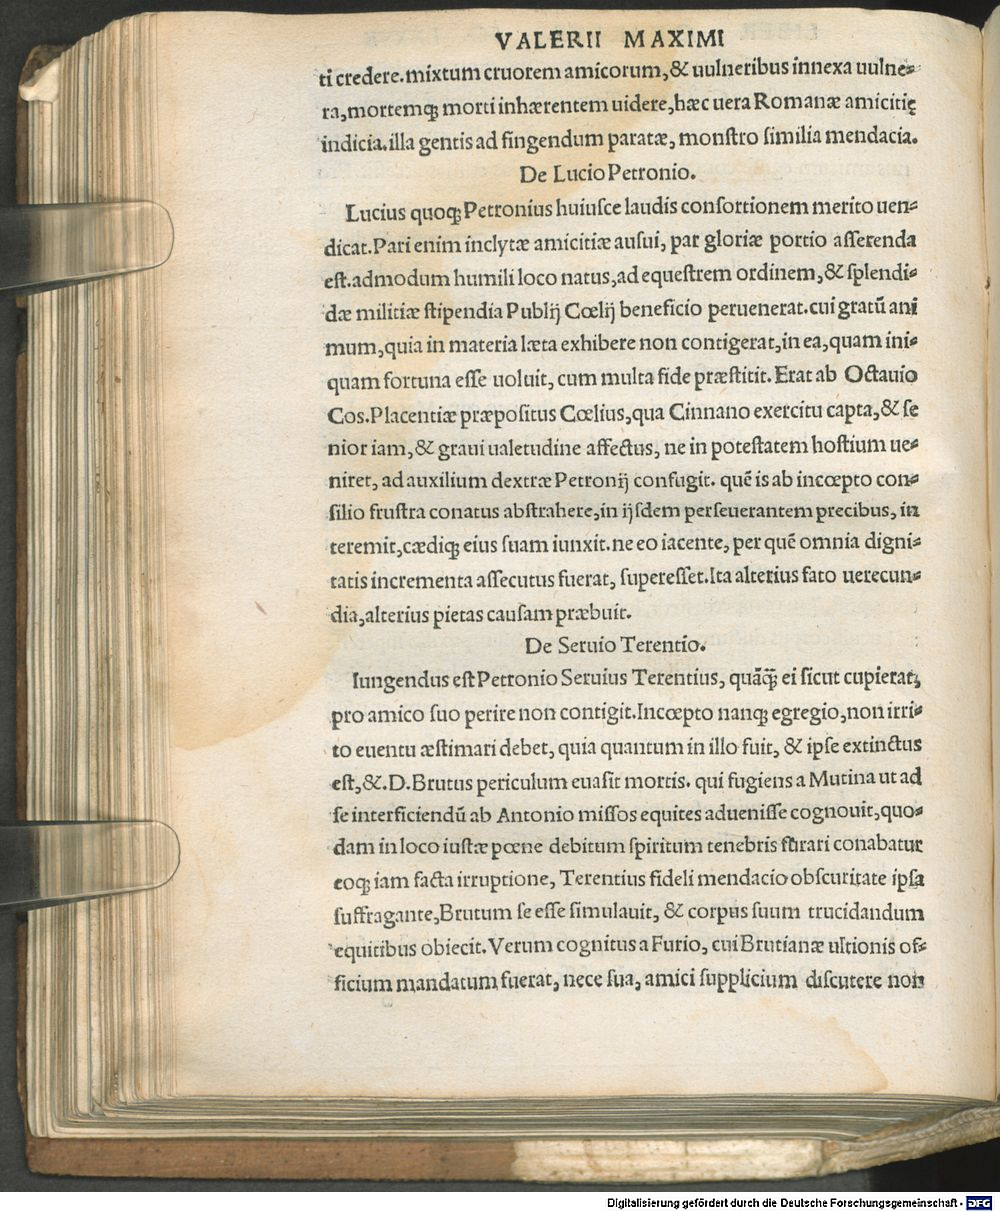 VALERII MAXIMI
ti credere. mixtum cruorem amicorum, & uulneribus innexa uulne-
ra, mortemq; morti inhærentem uidere, hæc uera Romanæ amicitię
indicia. illa gentis ad fingendum paratæ, monſtro ſimilia mendacia.
De Lucio Petronio.
Lucius quoq; Petronius huiuſce laudis conſortionem merito uen-
dicat. Pari enim inclytæ amicitiæ auſui, par gloriæ portio aſſerenda
eſt. admodum humili loco natus, ad equeſtrem ordinem, & ſplendi-
dæ militiæ ſtipendia Publij Cœlij beneficio peruenerat. cui gratū ani
mum, quia in materia læta exhibere non contigerat, in ea, quam ini-
quam fortuna eſſe uoluit, cum multa fide præſtitit. Erat ab Octauio
Cos. Placentiæ præpoſitus Cœlius, qua Cinnano exercitu capta, & ſe
nior iam, & graui ualetudine affectus, ne in poteſtatem hoſtium ue-
niret, ad auxilium dextræ Petronij confugit. quē is ab incœpto con-
ſilio fruſtra conatus abſtrahere, in ijſdem perſeuerantem precibus, in
teremit, cædiq; eius ſuam iunxit. ne eo iacente, per quē omnia digni-
tatis incrementa aſſecutus fuerat, ſupereſſet. Ita alterius fato uerecun-
dia, alterius pietas cauſam præbuit.
De Seruio Terentio.
Iungendus eſt Petronio Seruius Terentius, quāq̃ ei ſicut cupierat,
pro amico ſuo perire non contigit. Incœpto nanq; egregio, non irri-
to euentu æſtimari debet, quia quantum in illo fuit, & ipſe extinctus
eſt, &. D. Brutus periculum euaſit mortis. qui fugiens a Mutina ut ad
ſe interficiendū ab Antonio miſſos equites adueniſſe cognouit, quo-
dam in loco iuſtæ pœne debitum ſpiritum tenebris ſtirari conabatur
eoq; iam facta irruptione, Terentius fideli mendacio obſcuritate ipſa
ſuffragante, Brutum ſe eſſe ſimulauit, & corpus ſuum trucidandum
equitibus obiecit. Verum cognitus a Furio, cui Brutianæ ultionis of-
ficium mandatum fuerat, nece ſua, amici ſupplicium diſcutere non
Digitalisierung gefördert durch die Deutsche Forschungsgemeinschaft - DFG